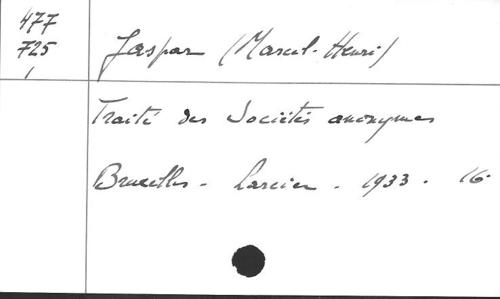 477
725
1
Jaspar (Marcel-Henri)
Traité des Sociétés anonymes
Bruxelles - Larcier - 1933 - 16